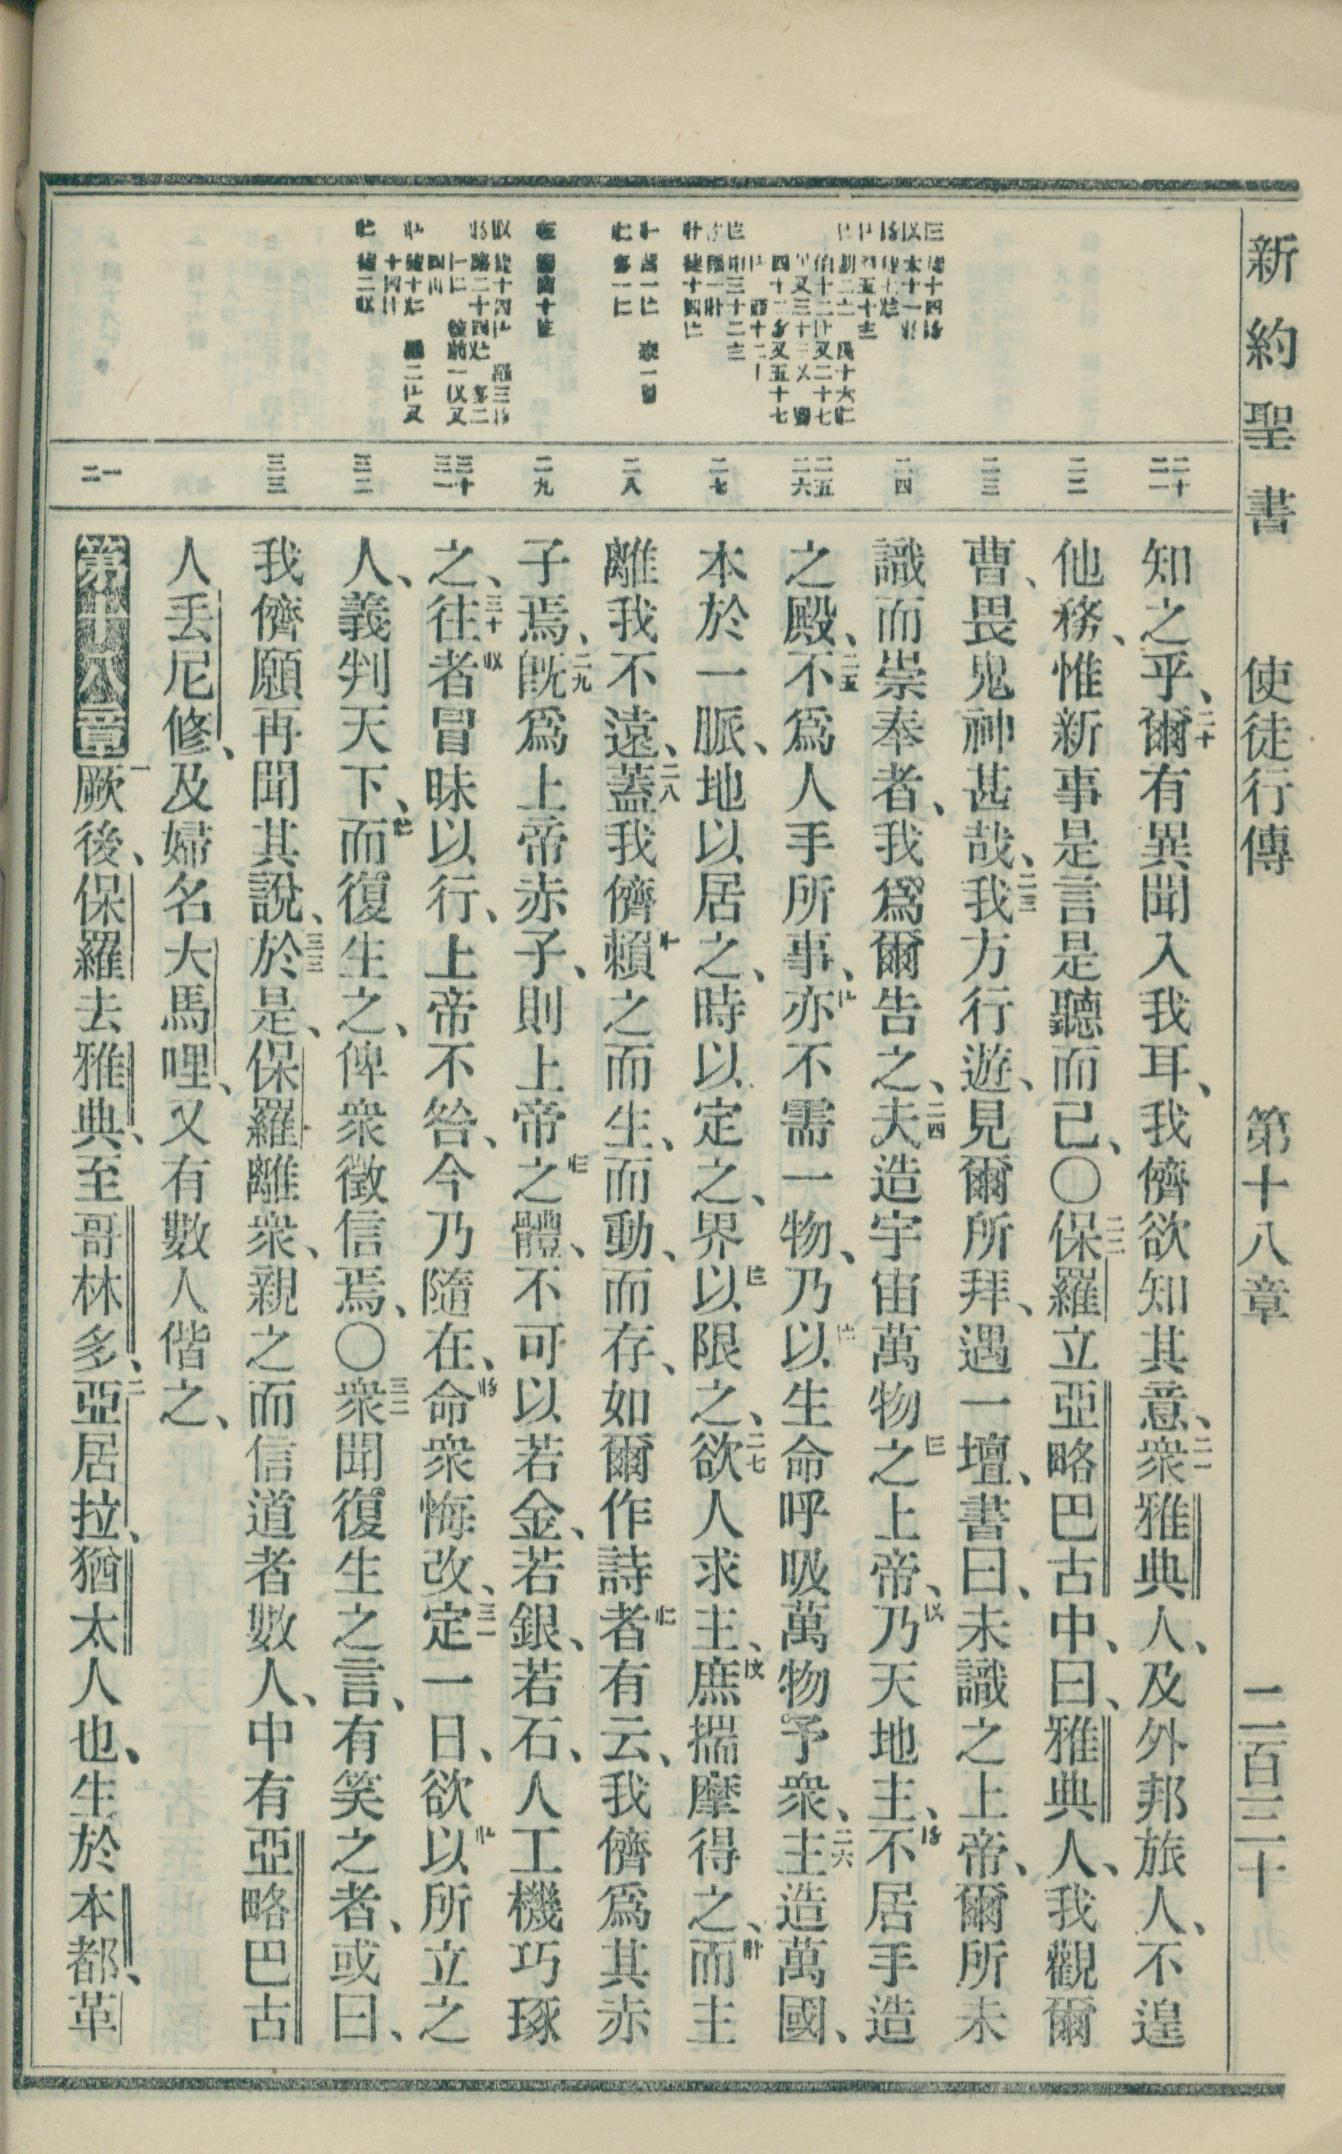 新約聖書 使徒行傳 第十八章 二百三十
二十 二一
二二
二三
二四
二五 二六
二七
二八
二九
三十 三一
三二
三三
一 二
知之乎、二十爾有異聞入我耳、我儕欲知其意、二一衆雅典人、及外邦旅人、不遑
他務、惟新事是言是聽而已、〇二二保羅立亞略巴古中、曰、雅典人、我觀爾
曹、畏鬼神甚哉、二三我方行遊、見爾所拜、遇一壇、書曰、未識之上帝、爾所未
識而崇奉者、我爲爾告之、二四夫造宇宙萬物之上帝、乃天地主、不居手造
之殿、二五不爲人手所事、亦不需一物、乃以生命呼吸萬物予衆、二六主造萬國、
本於一脈、地以居之、時以定之、界以限之、二七欲人求主、庶揣摩得之、而主
離我不遠、二八蓋我儕賴之而生、而動、而存、如爾作詩者有云、我儕爲其赤
子焉、二九旣爲上帝赤子、則上帝之體、不可以若金、若銀、若石、人工機巧琢
之、三十往者冒昧以行、上帝不咎、今乃隨在、命衆悔改、三一定一日、欲以所立之
人、義判天下、而復生之、俾衆徵信焉、〇三二衆聞復生之言、有笑之者、或曰、
我儕願再聞其說、三三於是、保羅離衆、親之而信道者數人、中有亞略巴古
人丢尼修、及婦名大馬哩、又有數人偕之、
第十八章 一厥後、保羅去雅典、至哥林多、二亞居拉、猶太人也、生於本都、革